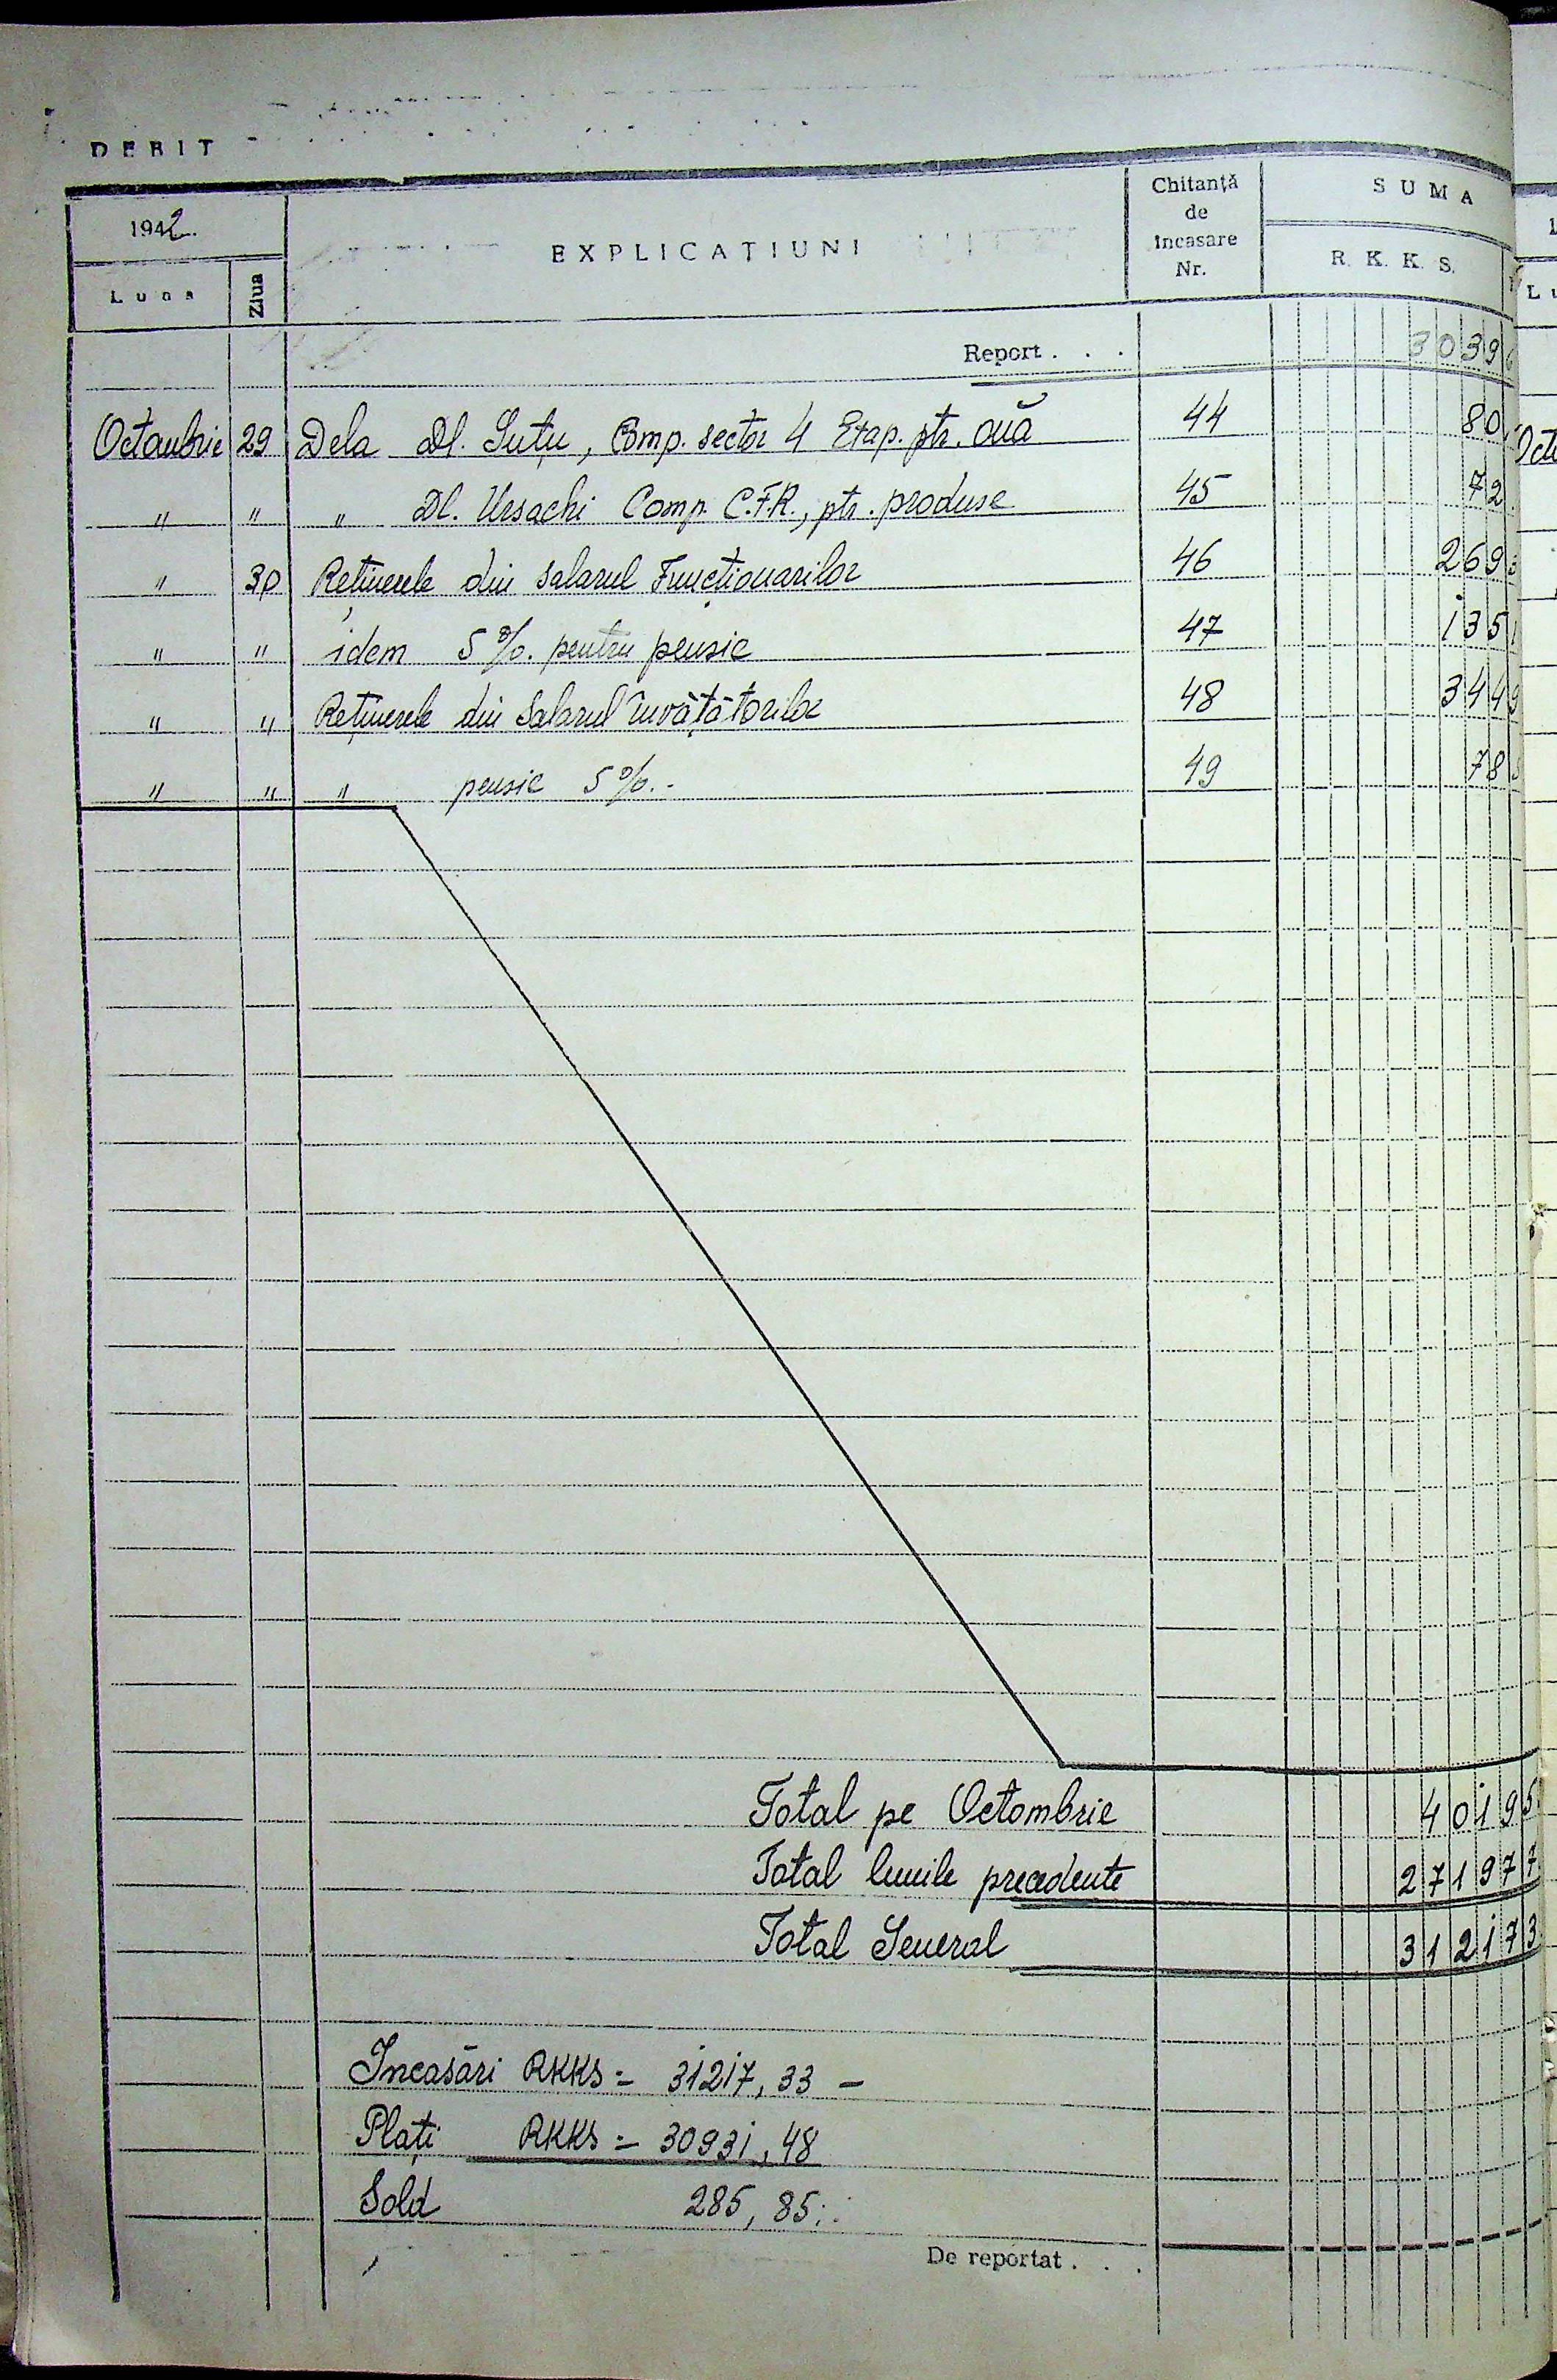 DEBIT
1942 EXPLICAȚIUNI Chitanță de încasare Nr. SUMA
Luna Ziua R. K. K. S.
Report . . . 3039
Octanbrie 29 Dela Dl. Suțu, Comp. sector 4 Etap. ptr. ouă 44 80
" " " Dl. Ursachi Comp. C.F.R., ptr. produse 45 72
" 30 Reținerele din salarul Funcționarilor 46 269
" " idem 5%. pentru pensie 47 135
" " Reținerele din Salarul învățătorilor 48 344
" " " pensie 5%.- 49 78
Total pe Octombrie 40195
Total lunile precedente 271977
Total General 312173
Incasări RKKS = 31217,33 –
Plați RKKS = 30931,48
Sold 285,85
De reportat . . .